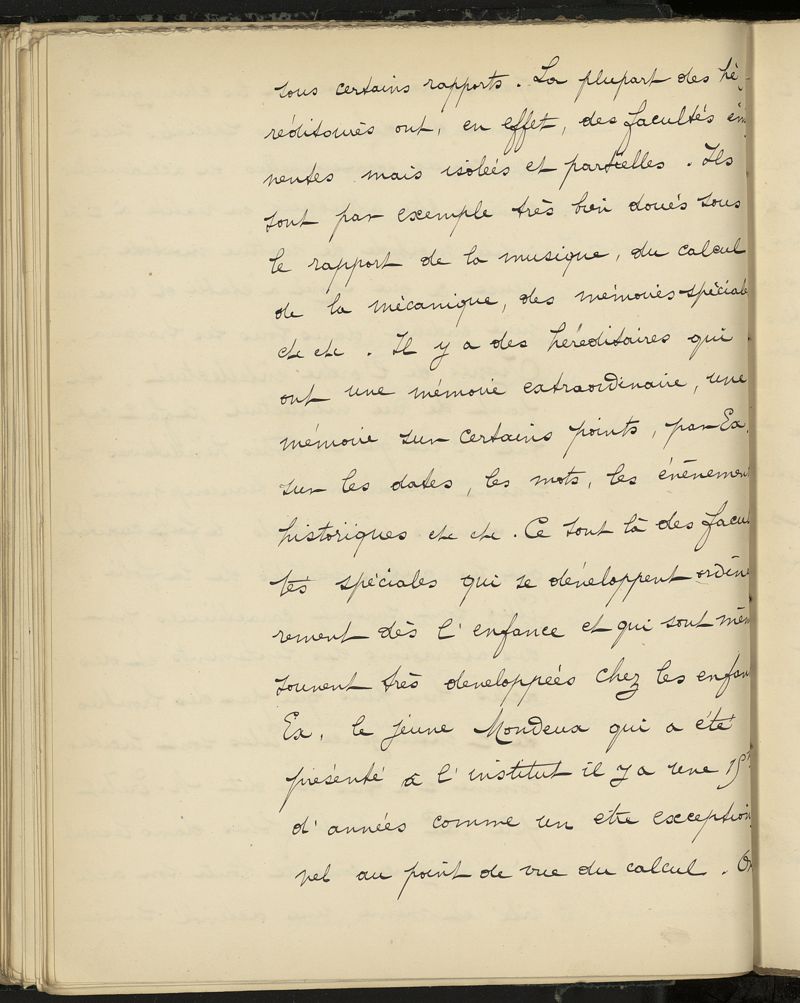 sous certains rapports. La plupart des hé-
réditaires ont, en effet, des facultés émi
nentes mais isolées et partielles. Ils
sont par exemple très bien doués sous
le rapport de la musique, du calcul
de la mécanique, des mémoires spéciale
etc etc. Il y a des héréditaires qui
ont une mémoire extraordinaire, une
mémoire sur certains points, par Ex.
sur les dates, les mots, les événement
historiques etc etc. Ce sont là des facul
tés spéciales qui se développent ordine
rement dès l'enfance et qui sont mêm
souvent très developpées chez les enfan
Ex. le jeune Mondeux qui a été
présenté à l'institut il y a une 15ne
d'années comme un etre exception
nel au point de vue du calcul. On